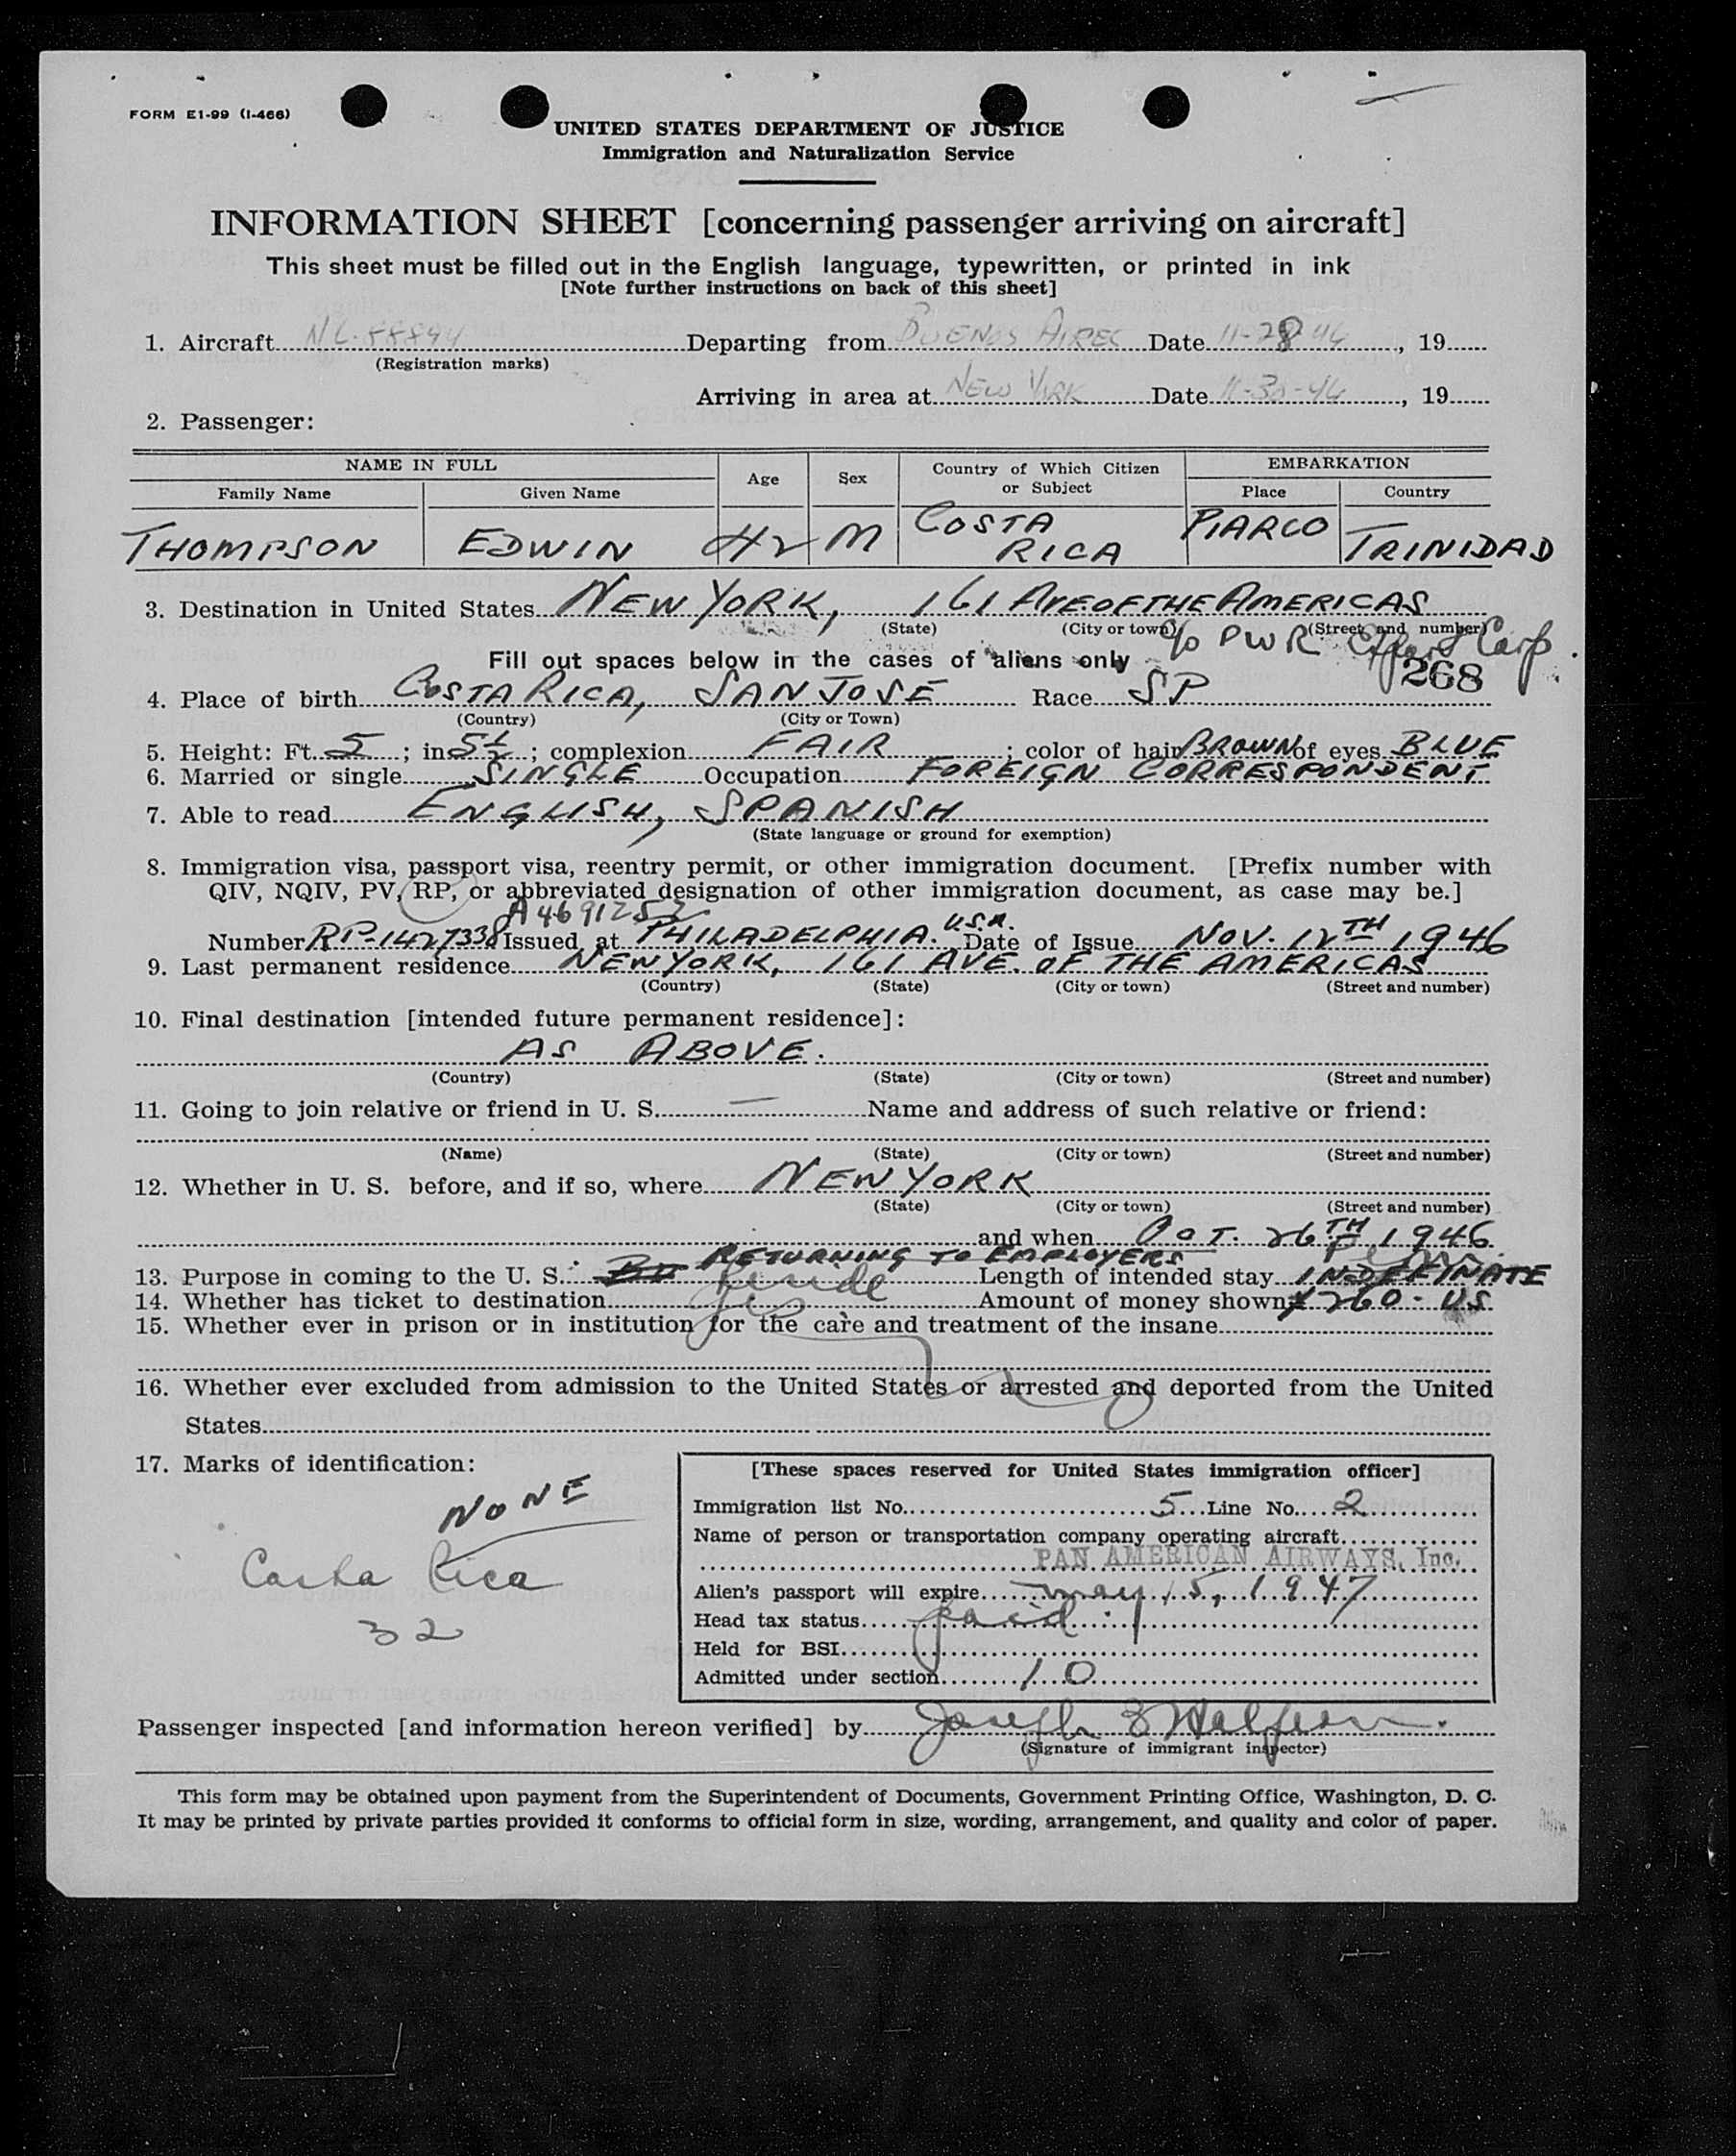 FORM E1-99 (I-466)
UNITED STATES DEPARTMENT OF JUSTICE
Immigration and Naturalization Service
INFORMATION SHEET [concerning passenger arriving on aircraft]
This sheet must be filled out in the English language, typewritten, or printed in ink
[Note further instructions on back of this sheet]
1. Aircraft NC-88894 Departing from BUENOS AIRES Date 11-28-46, 19
(Registration marks)
Arriving in area at NEW YORK Date 11-30-46, 19
2. Passenger:
NAME IN FULL Age Sex Country of Which Citizen or Subject EMBARKATION
Family Name Given Name Place Country
THOMPSON EDWIN 42 M COSTA RICA PIARCO TRINIDAD
3. Destination in United States NEW YORK, 161 AVE OF THE AMERICAS
(State) (City or town) (Street and number)
c/o PWR Export Corp.
Fill out spaces below in the cases of aliens only
268
4. Place of birth COSTA RICA, SAN JOSE Race SP
(Country) (City or Town)
5. Height: Ft. 5; in 5½; complexion FAIR; color of hair BROWN of eyes BLUE
6. Married or single SINGLE Occupation FOREIGN CORRESPONDENT
7. Able to read ENGLISH, SPANISH
(State language or ground for exemption)
8. Immigration visa, passport visa, reentry permit, or other immigration document. [Prefix number with
QIV, NQIV, PV, RP, or abbreviated designation of other immigration document, as case may be.]
A4691252
Number RP-1427338 Issued at PHILADELPHIA. U.S.A. Date of Issue NOV. 12TH 1946
9. Last permanent residence NEW YORK, 161 AVE. OF THE AMERICAS
(Country) (State) (City or town) (Street and number)
10. Final destination [intended future permanent residence]:
AS ABOVE.
(Country) (State) (City or town) (Street and number)
11. Going to join relative or friend in U. S. — Name and address of such relative or friend:
(Name) (State) (City or town) (Street and number)
12. Whether in U. S. before, and if so, where NEW YORK
(State) (City or town) (Street and number)
and when OCT. 26TH 1946
RETURNING TO EMPLOYERS
13. Purpose in coming to the U. S. reside Length of intended stay INDEFINATE
14. Whether has ticket to destination yes Amount of money shown $260- US
15. Whether ever in prison or in institution for the care and treatment of the insane
16. Whether ever excluded from admission to the United States or arrested and deported from the United
States no
17. Marks of identification:
NONE
Costa Rica
32
[These spaces reserved for United States immigration officer]
Immigration list No. 5 Line No. 2
Name of person or transportation company operating aircraft
PAN AMERICAN AIRWAYS, Inc.
Alien's passport will expire may 15, 1947
Head tax status paid
Held for BSI
Admitted under section 10
Passenger inspected [and information hereon verified] by Joseph Halpern
(Signature of immigrant inspector)
This form may be obtained upon payment from the Superintendent of Documents, Government Printing Office, Washington, D. C.
It may be printed by private parties provided it conforms to official form in size, wording, arrangement, and quality and color of paper.